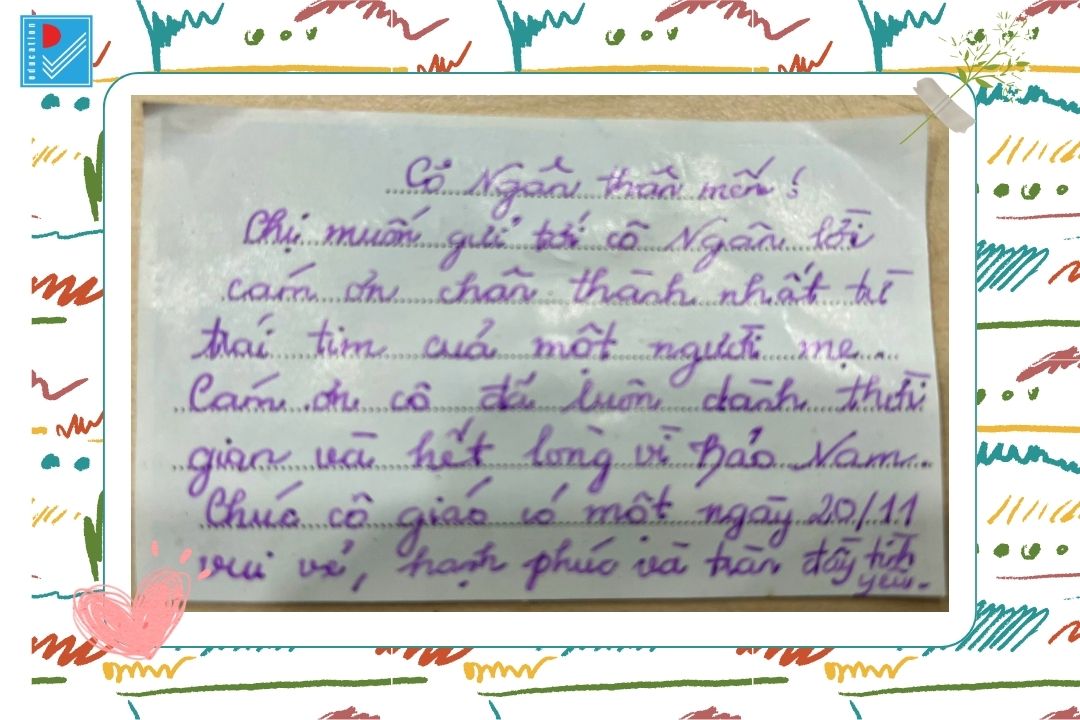 education
Cô Ngân thân mến!
Chị muốn gửi tới cô Ngân lời
cảm ơn chân thành nhất từ
trái tim của một người mẹ...
Cảm ơn cô đã luôn dành thời
gian và hết lòng vì Bảo Nam..
Chúc cô giáo có một ngày 20/11
vui vẻ, hạnh phúc và tràn đầy tình
yêu.